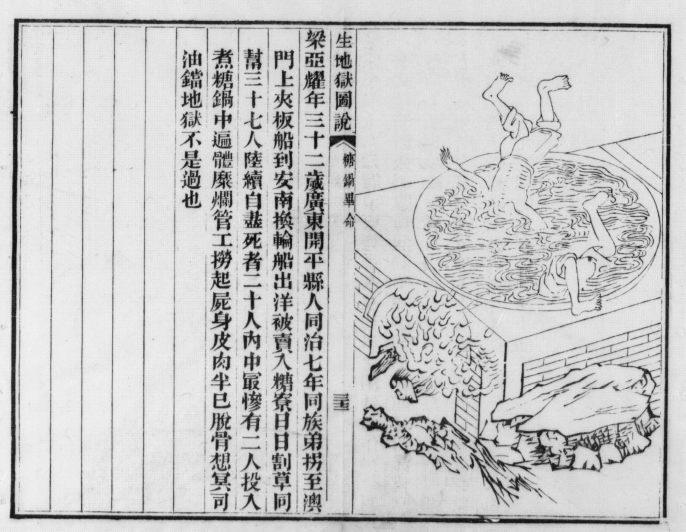 生地獄圖說
糖鍋畢命
三十二
梁亞耀年三十二歲廣東開平縣人同治七年同族弟拐至澳
門上夾板船到安南換輪船出洋被賣入糖寮日日割草同
幫三十七人陸續自盡死者二十人內中最慘有二人投入
煮糖鍋中遍體糜爛管工撈起屍身皮肉半已脫骨想冥司
油鐺地獄不是過也